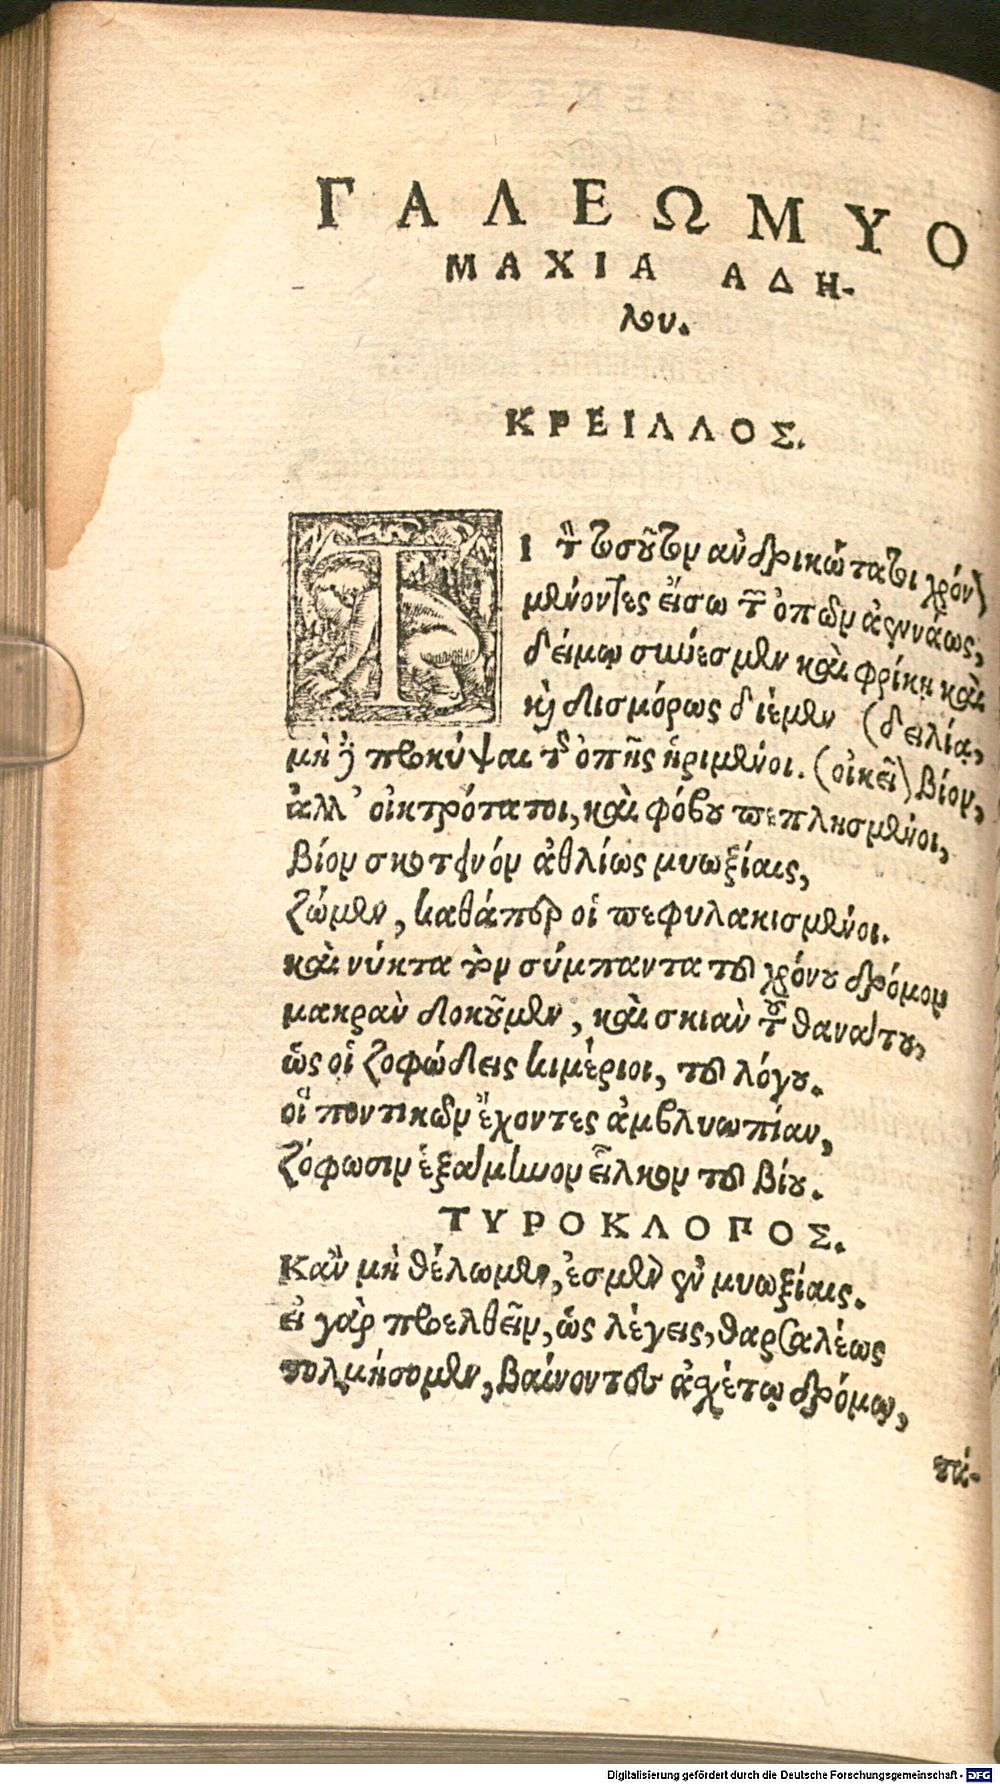 ΓΑΛΕΩΜΥΟ
ΜΑΧΙΑ ΑΔΗ-
λου.
ΚΡΕΙΛΛΟΣ.
ΤΙ τὸ τοσοῦτον ἀνδρικώτατοι χρόνον
μένοντες εἴσω τῶν ὀπῶν ἀεννάως,
δείμῳ σύνεσμεν καὶ φρίκῃ καὶ
καὶ δισμόρως δίεμεν (δειλίᾳ,
μὴ δὲ προκύψαι τῆς ὀπῆς ᾑρημένοι. (οἰκεῖ) βίον,
ἀλλ' οἰκτρότατοι, καὶ φόβου πεπλησμένοι,
βίον σκοτεινόν ἀθλίως μυωξίαις,
ζῶμεν, καθάπερ οἱ πεφυλακισμένοι.
καὶ νύκτα τὸν σύμπαντα τοῦ χρόνου δρόμον
μακρὰν δοκοῦμεν, καὶ σκιὰν τοῦ θανάτου,
ὡς οἱ ζοφώδεις κιμέριοι, τοῦ λόγου.
οἳ ποντικῶν ἔχοντες ἀμβλυωπίαν,
ζόφωσιν ἑξαμήνον εἷλκον τοῦ βίου.
ΤΥΡΟΚΛΟΠΟΣ.
Κἂν μὴ θέλωμεν, ἐσμὲν ἐν μυωξίαις.
εἰ γὰρ προελθεῖν, ὡς λέγεις, θαρσαλέως
τολμήσομεν, βαίνοντες ἀσχέτῳ δρόμῳ,